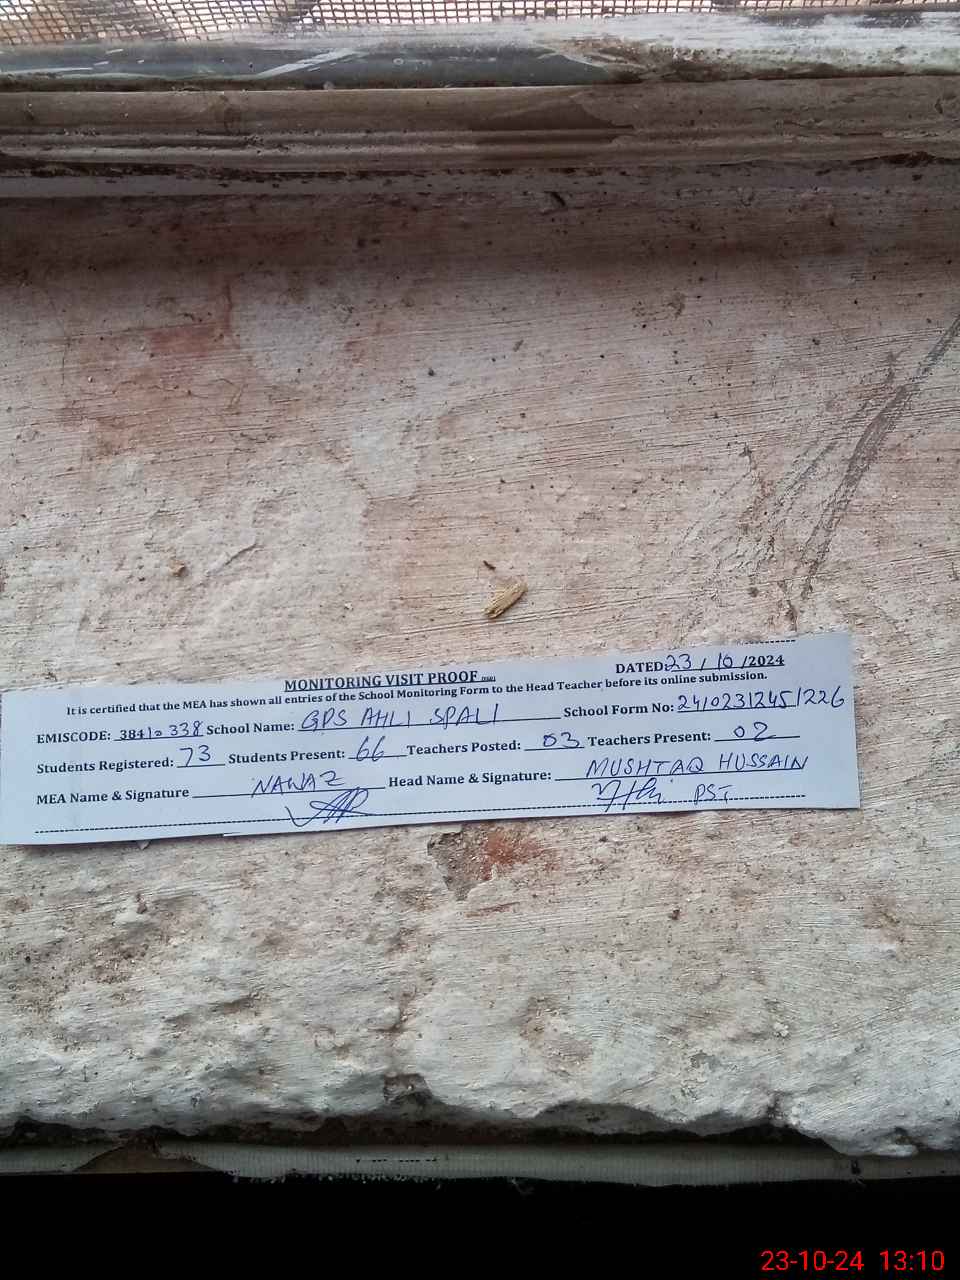 MONITORING VISIT PROOF
DATED: 23 / 10 /2024
It is certified that the MEA has shown all entries of the School Monitoring Form to the Head Teacher before its online submission.
EMISCODE: 38410338 School Name: GPS AHLI SPALI School Form No: 24102312451226
Students Registered: 73 Students Present: 66 Teachers Posted: 03 Teachers Present: 02
MEA Name & Signature NAWAZ Head Name & Signature: MUSHTAQ HUSSAIN
PST
23-10-24 13:10